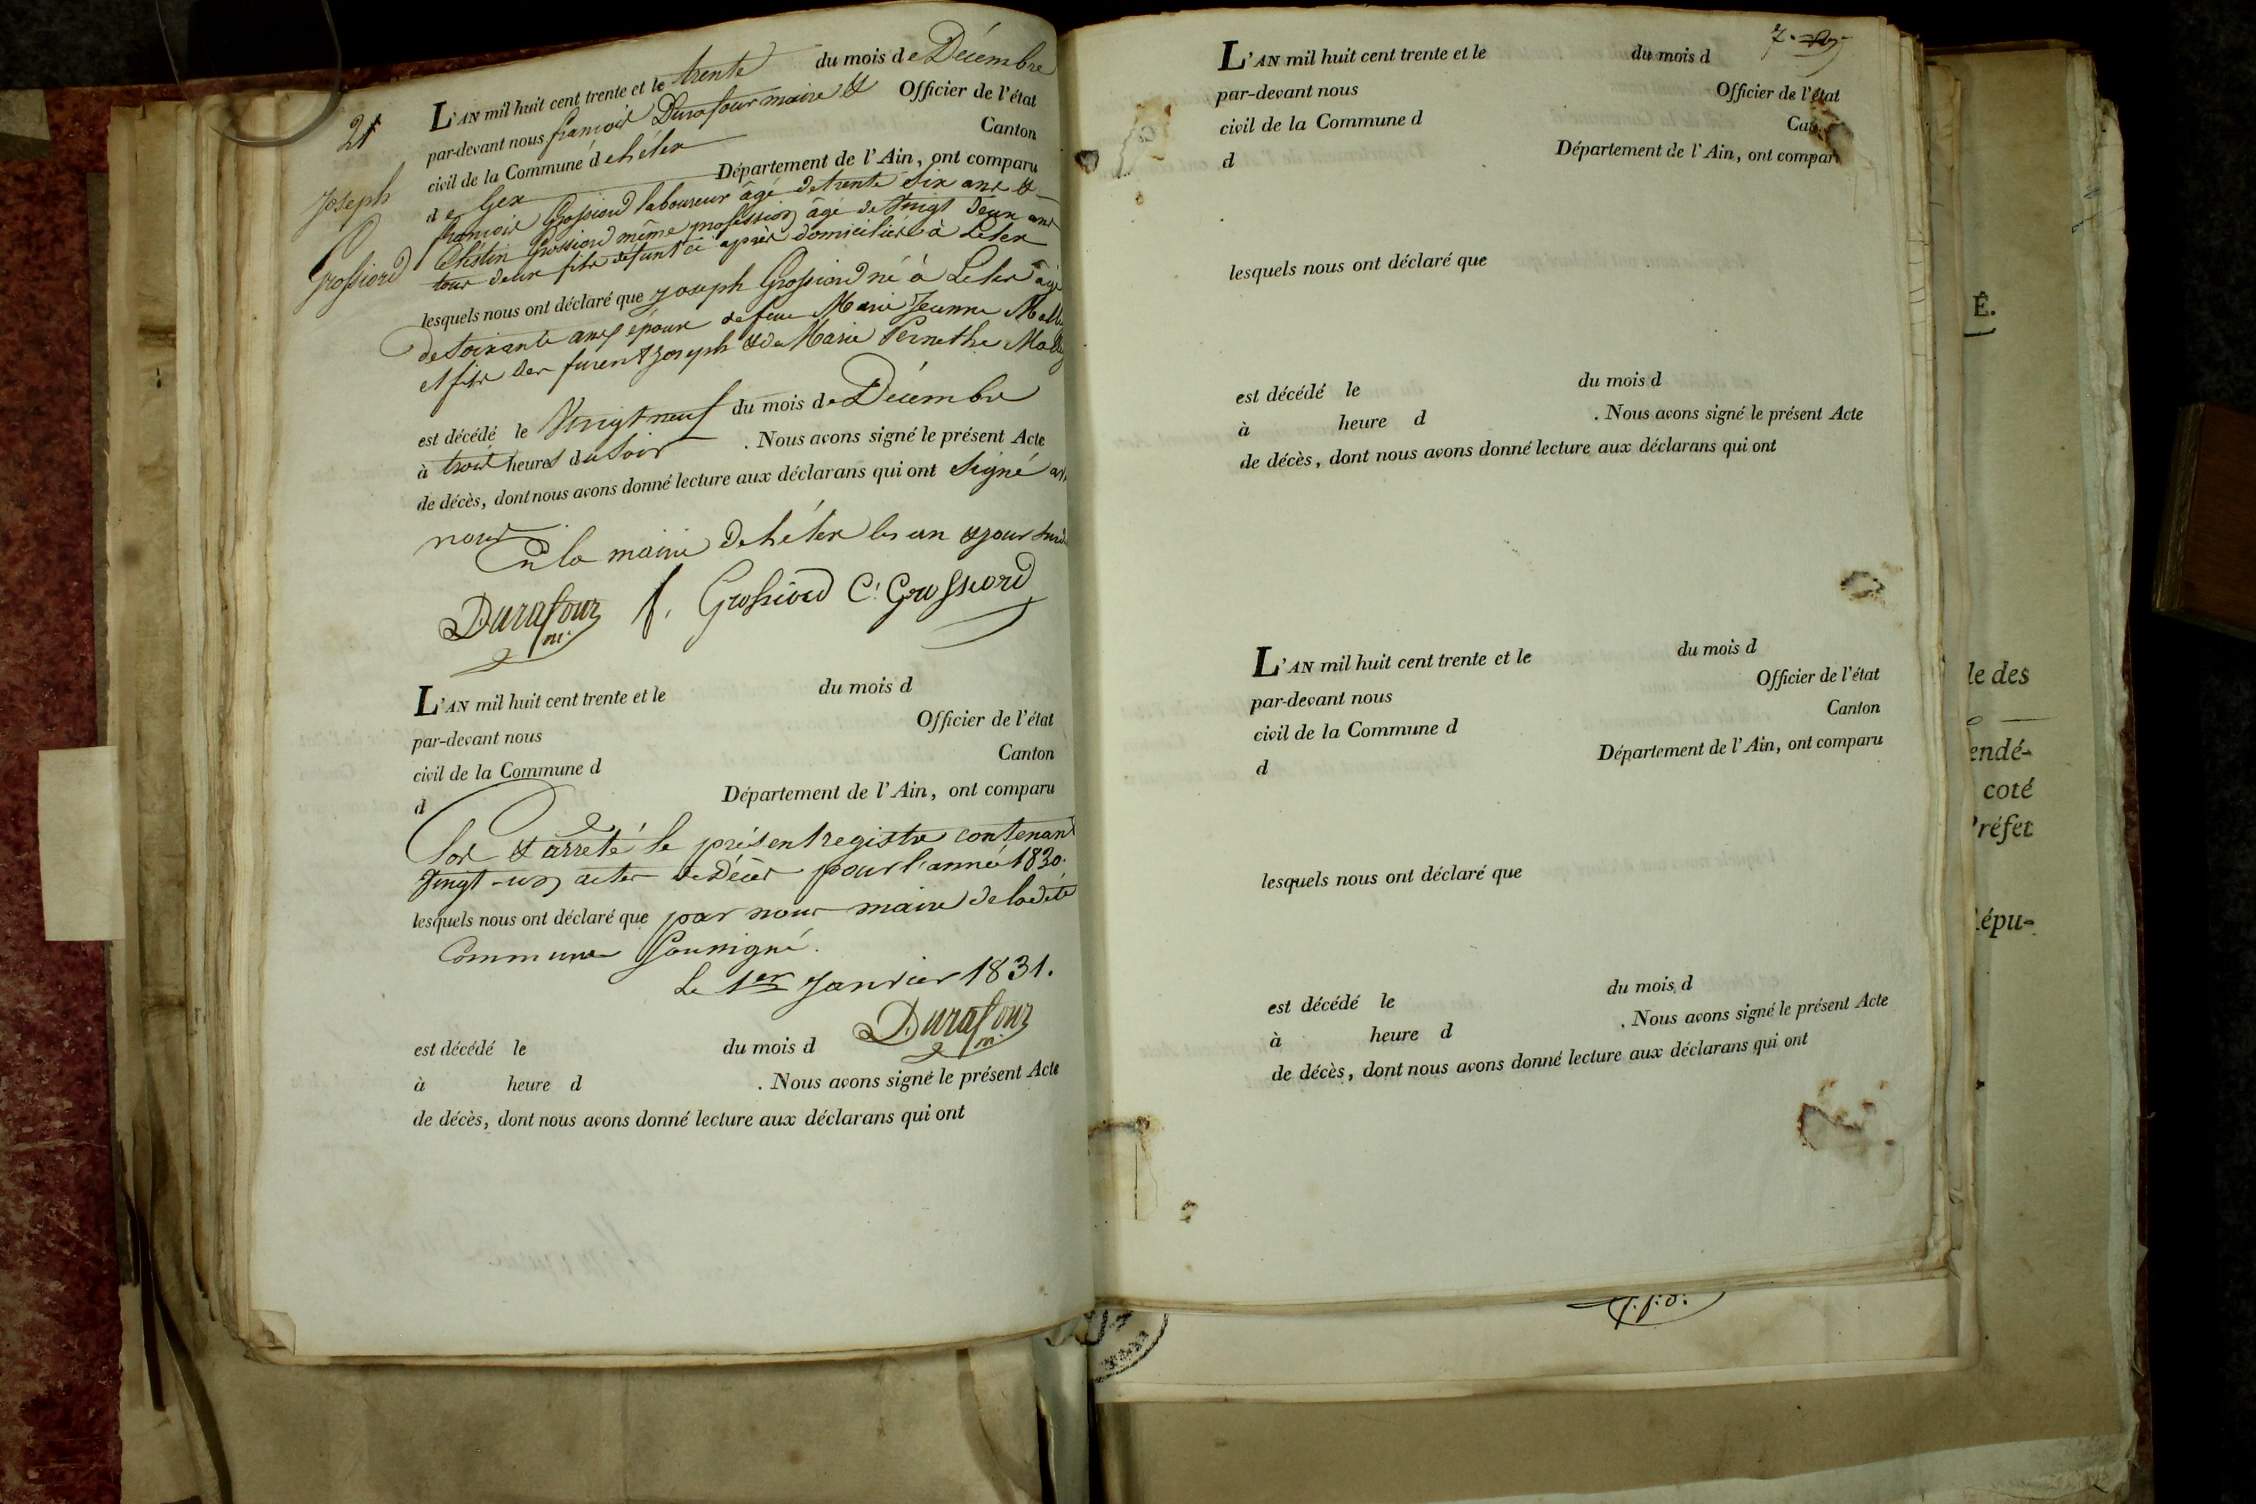 21
Joseph
Grossiord
L'AN mil huit cent trente et le trente du mois de Décembre
par-devant nous françois Durafour maire & Officier de l'état
civil de la Commune de Léléx Canton
de Gex Département de l'Ain, ont comparu
françois Grossiord laboureur âgé de trente six ans &
Céléstin Grossiord même profession âgé de vingt deux ans
tous deux fils défunt ci après domiciliés à Lelex
lesquels nous ont déclaré que Joseph Grossiord né à Lelex âgé
de soixante ans époux de feue Marie Jeanne
et fils des furent Joseph & de Marie Pernethe
est décédé le Vingt neuf du mois de Décembre
à trois heures du Soir . Nous avons signé le présent Acte
de décès, dont nous avons donné lecture aux déclarans qui ont signé
nous
En la mairie de Léléx les an & jour
Durafour m. f. Grossiord C. Grossiord
L'AN mil huit cent trente et le du mois d
par-devant nous Officier de l'état
civil de la Commune d Canton
d Département de l'Ain, ont comparu
Clos & arreté le présent registre contenant
Vingt-un actes de Décès pour l'année 1830.
lesquels nous ont déclaré que par nous maire de ladite
Commune Soussigné.
Le 1er Janvier 1831.
Durafour m.
est décédé le du mois d
à heure d . Nous avons signé le présent Acte
de décès, dont nous avons donné lecture aux déclarans qui ont
7.
L'AN mil huit cent trente et le du mois d
par-devant nous Officier de l'état
civil de la Commune d
d Département de l'Ain, ont compar
lesquels nous ont déclaré que
est décédé le du mois d
à heure d . Nous avons signé le présent Acte
de décès, dont nous avons donné lecture aux déclarans qui ont
L'AN mil huit cent trente et le du mois d
par-devant nous Officier de l'état
civil de la Commune d Canton
d Département de l'Ain, ont comparu
lesquels nous ont déclaré que
est décédé le du mois d
à heure d . Nous avons signé le présent Acte
de décès, dont nous avons donné lecture aux déclarans qui ont
Ê.
le des
endé-
coté
réfet
épu-